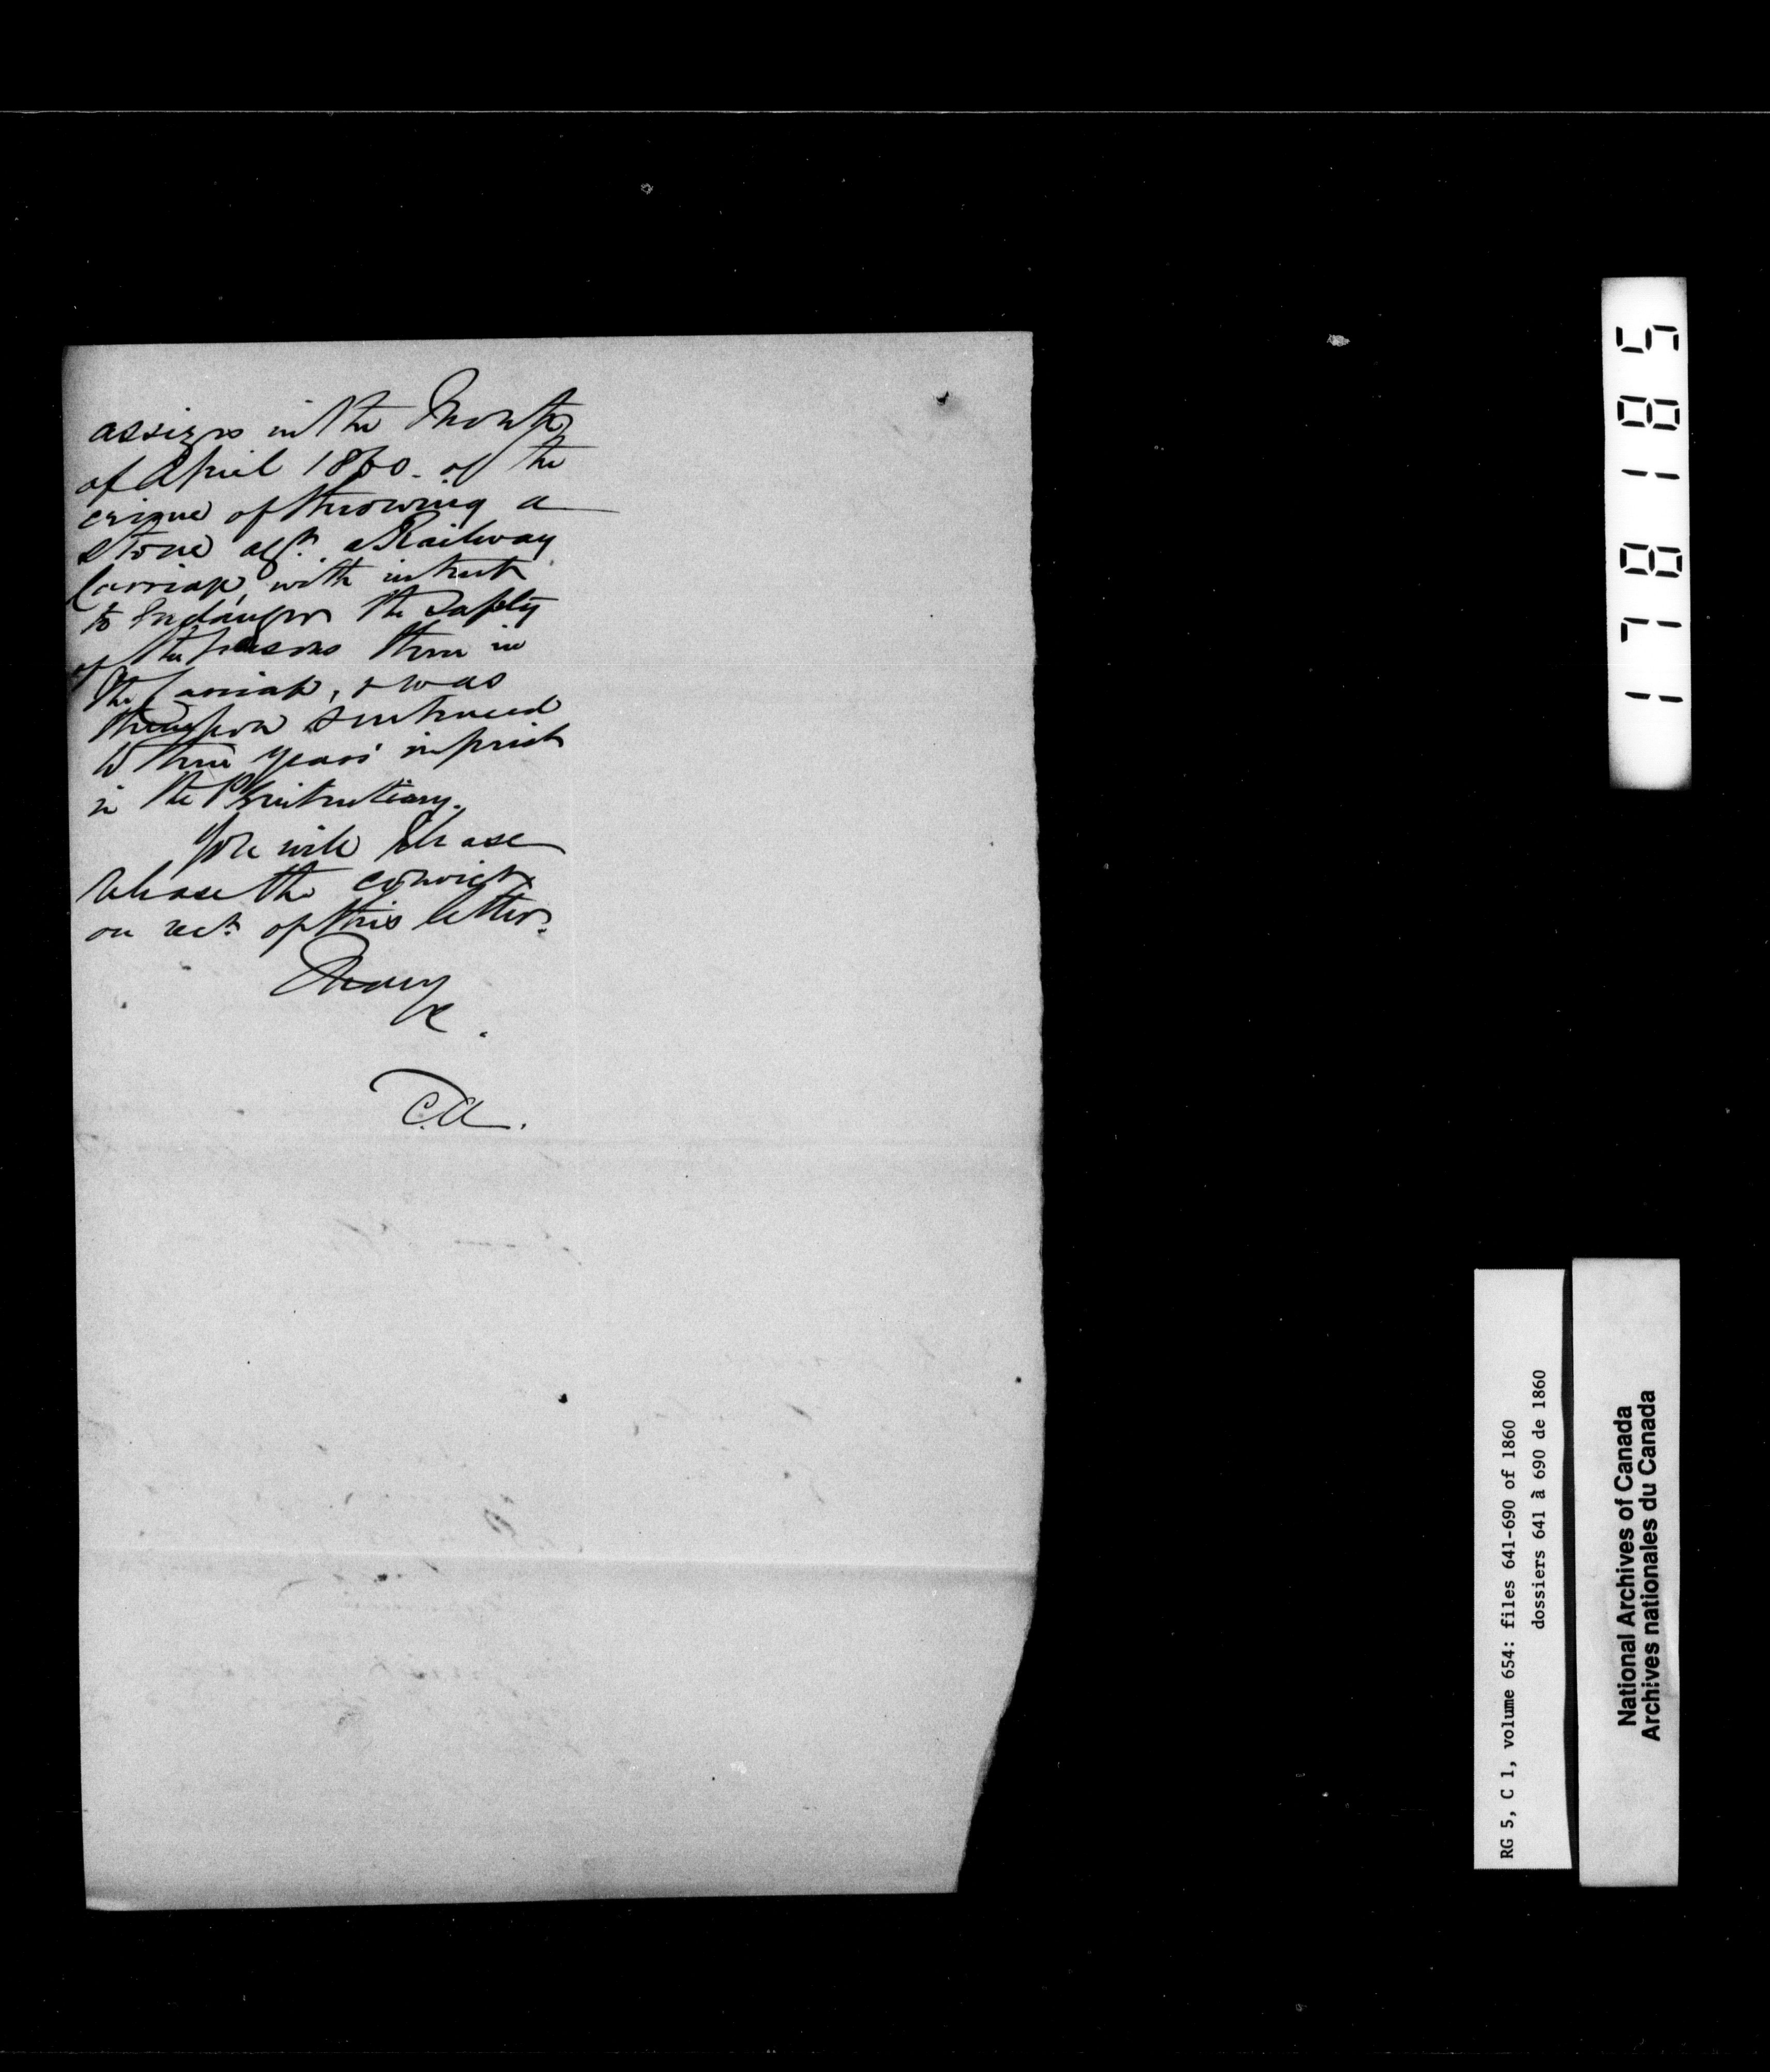 assizes in the Month
of April 1860. of the
crime of throwing a
stone agst. a Railway
Carriage, with intent
to Endanger the Safety
of the persons then in
the Carriage, & was
thereupon sentenced
to three years' imprist
in the Penitentiary.
You will please
release the convict
on rect. of this letter.
I have
&c.
C.A.
178185
RG 5, C 1, volume 654: files 641-690 of 1860
dossiers 641 à 690 de 1860
National Archives of Canada
Archives nationales du Canada